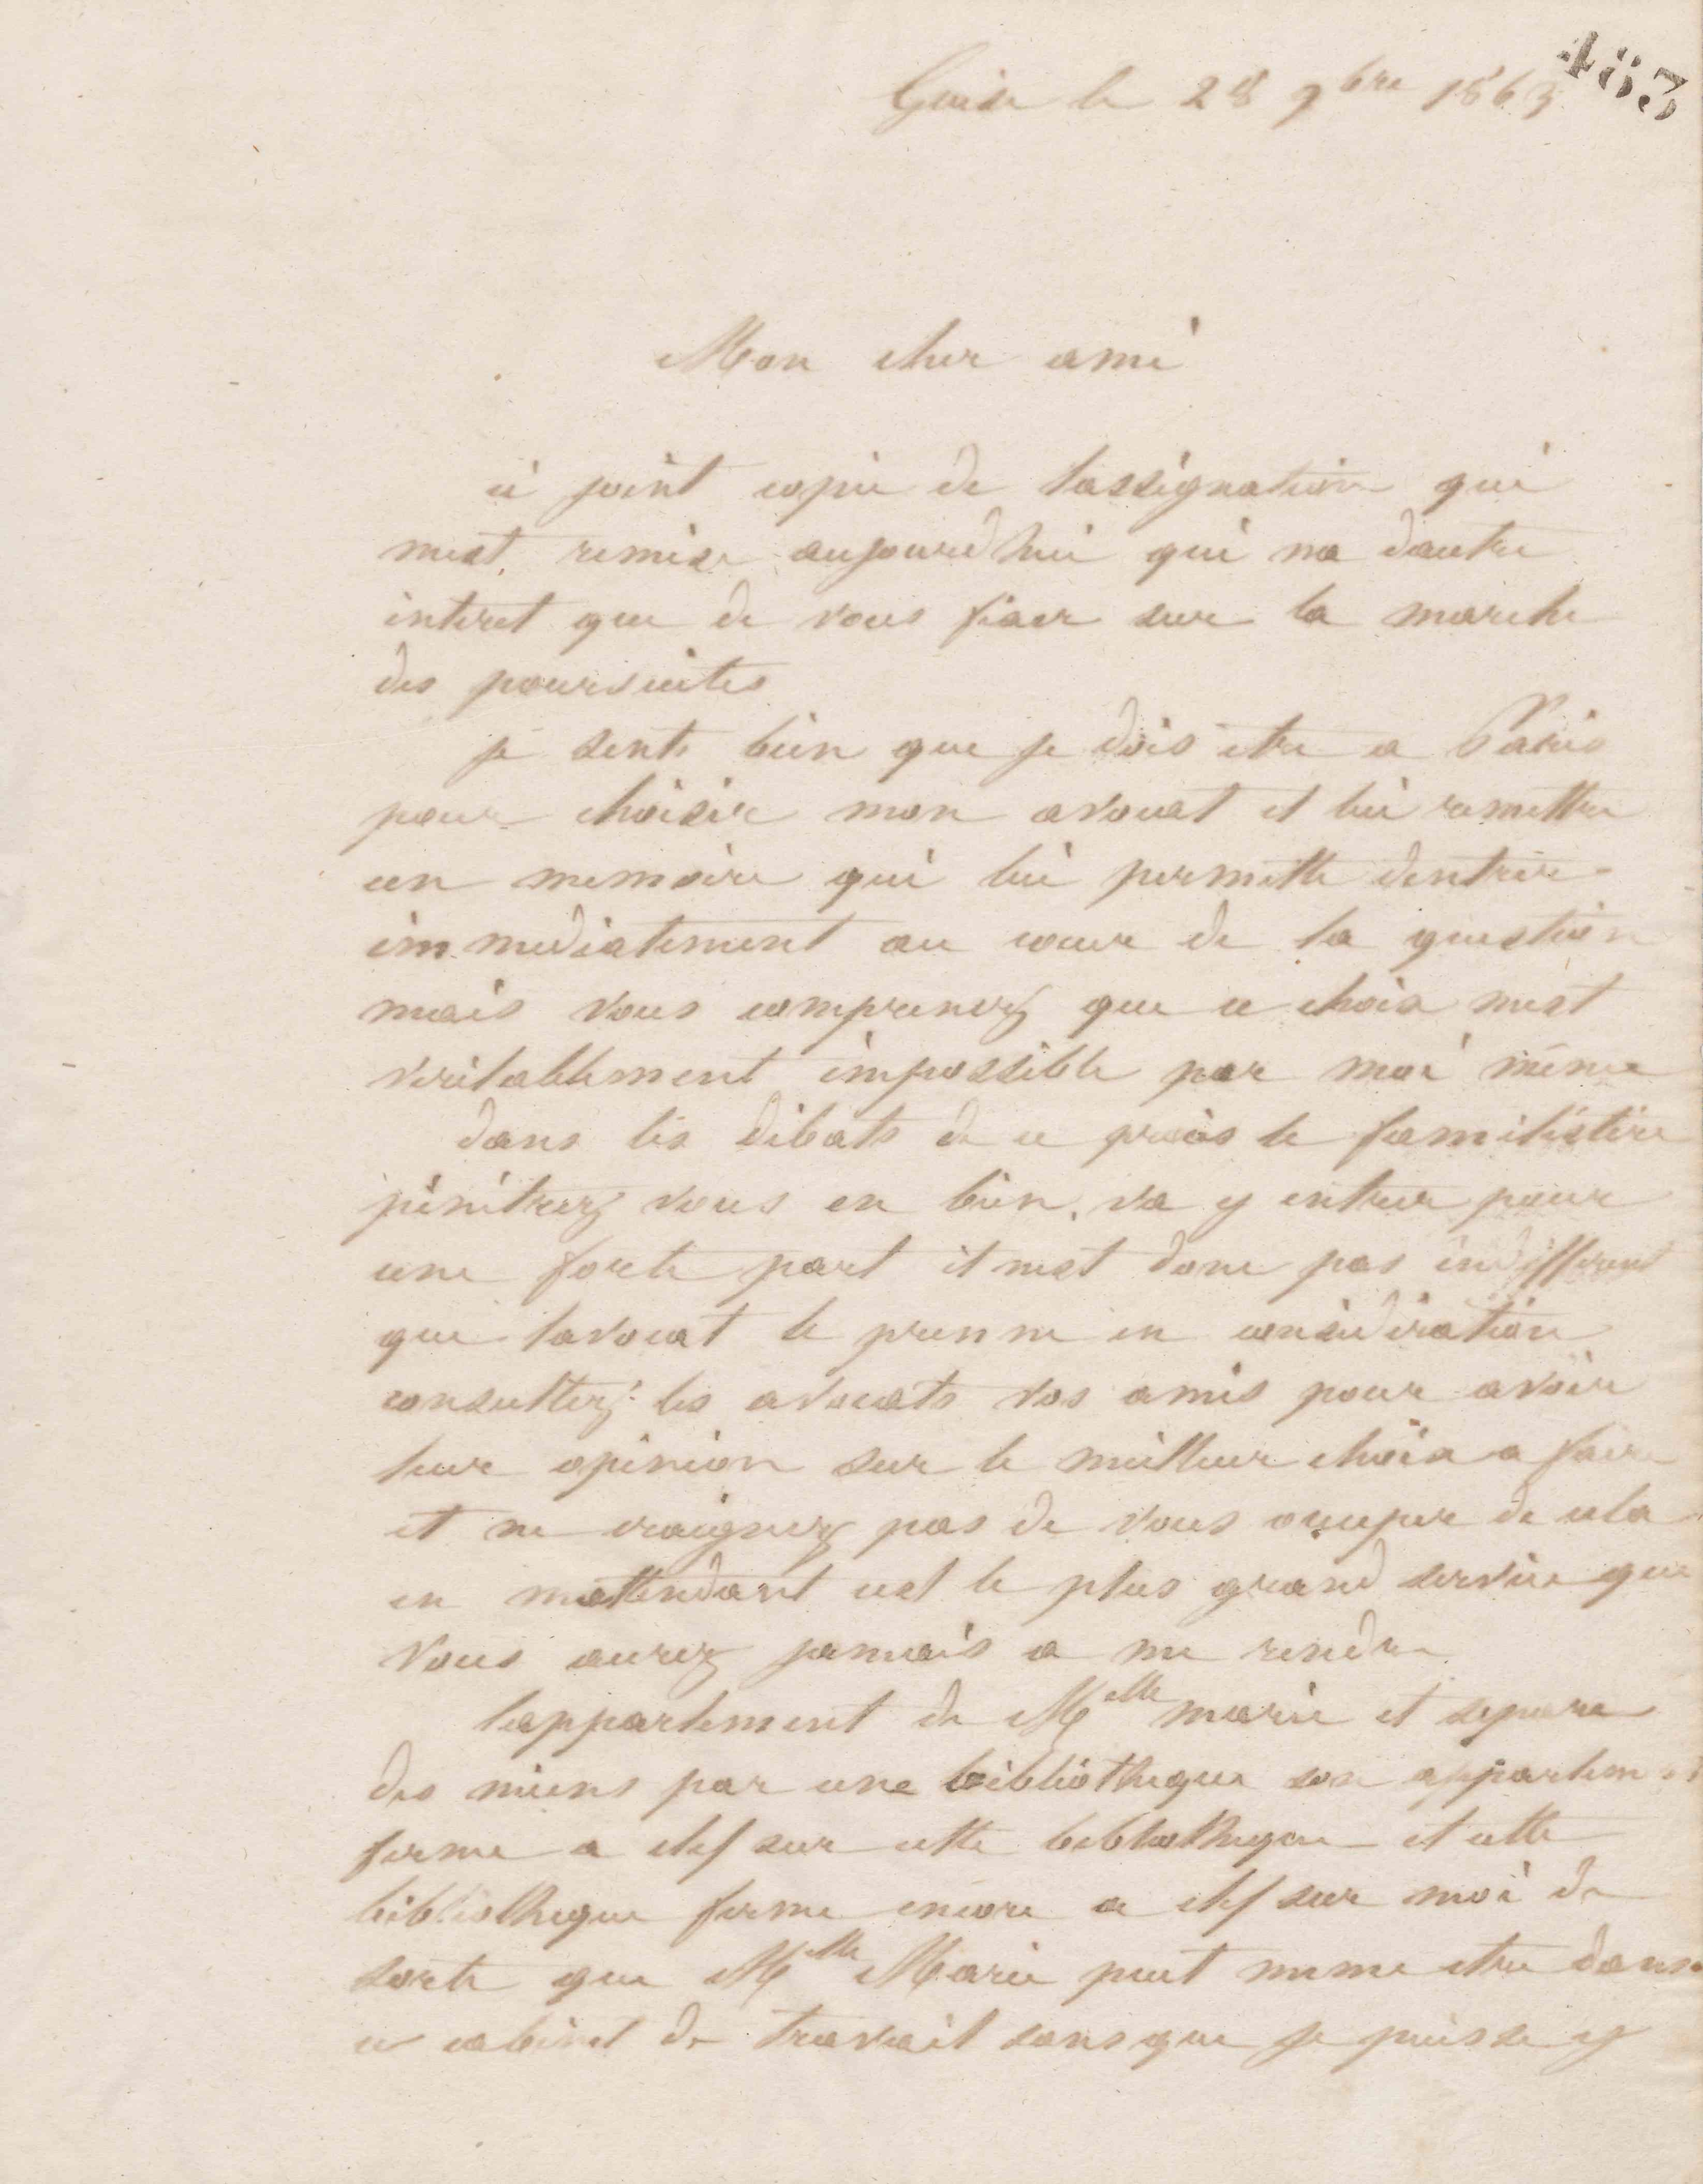 483
Guise le 28 9bre 1863
Mon cher ami
ci joint copie de lassignation qui
mest remise aujourdhui qui na dautre
interet que de vous fixer sur la marche
des poursuites
je sents bien que je dois etre a Paris
pour choisir mon avocat et lui remettre
un memoire qui lui permette dentrer
immediatement au cœur de la question
mais vous comprenez que ce choix mest
veritablement impossible par moi même
dans les débats de ce procès le familistère
pénétrez vous en bien, va y entrer pour
une forte part il nest donc pas indifferent
que lavocat le prenne en considération
consultez les avocats vos amis pour avoir
leur opinion sur le meilleur choix a faire
et ne craignez pas de vous occuper de cela
en mattendant cest le plus grand service que
vous aurez jamais a me rendre
lappartement de Melle marie et separe
des miens par une bibliotheque son appartement
ferme a clef sur cette bibliotheque et cette
bibliotheque ferme encore a clef sur moi de
sorte que Melle Marie peut meme etre dans
ce cabinet de travail sans que je puisse y